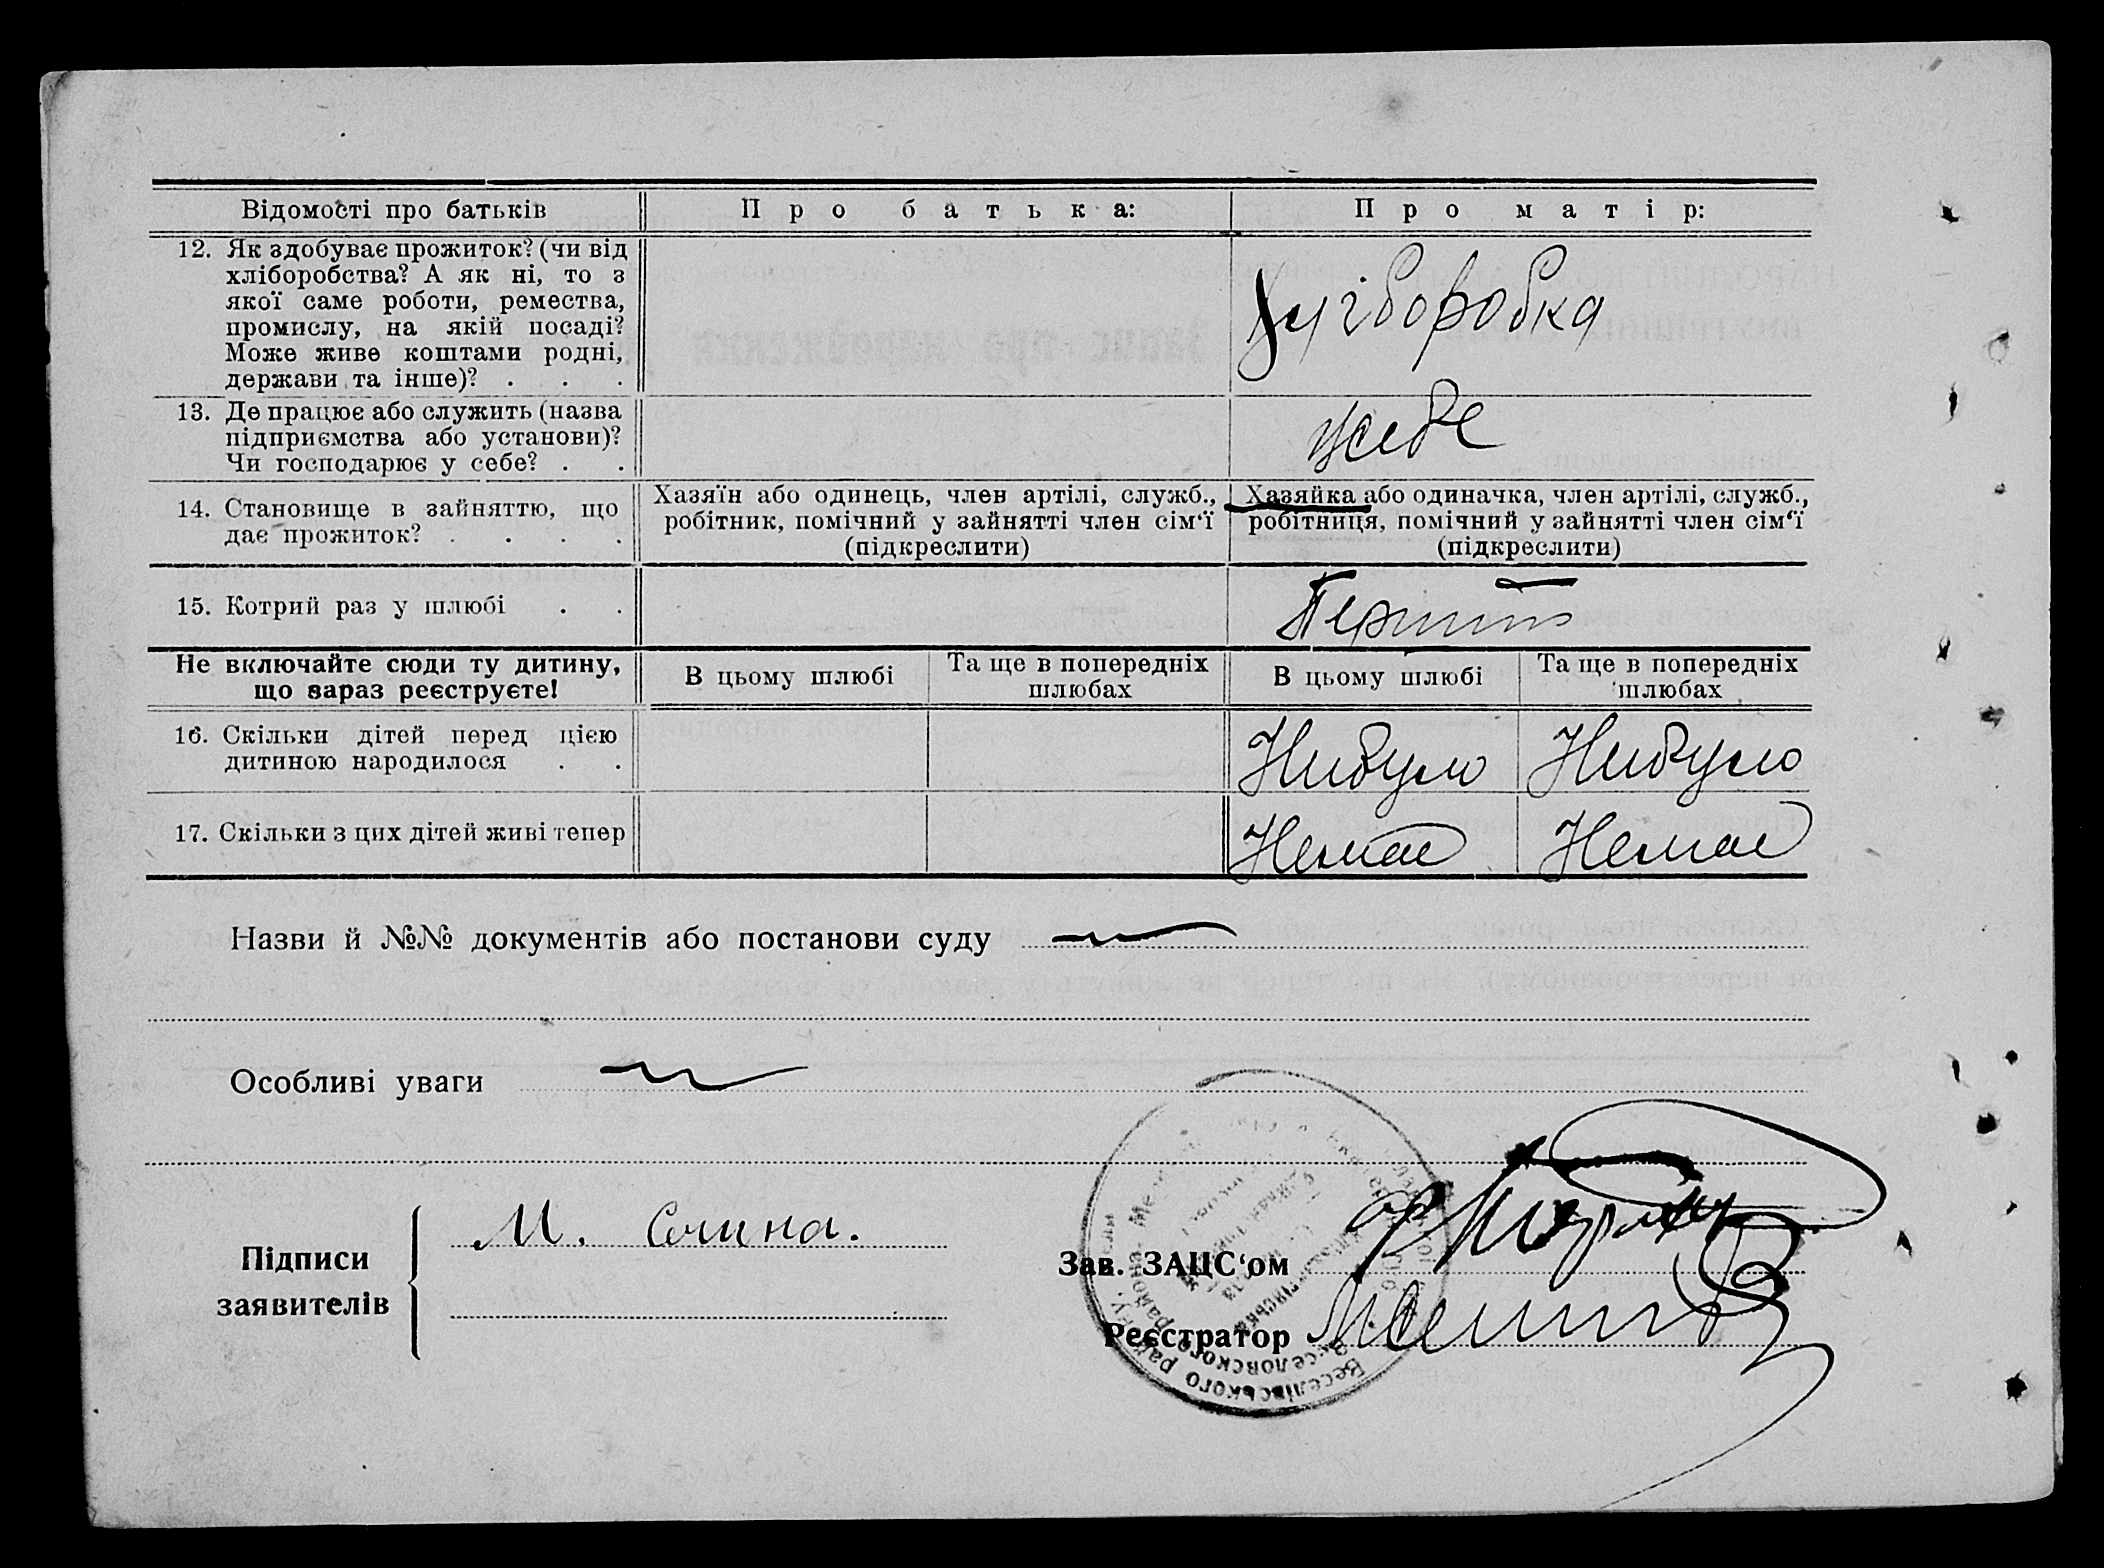 Відомості про батьків
Про батька:
Про матір:
12. Як здобуває прожиток? (чи від
хліборобства? А як ні, то з
якої саме роботи, ремества,
промислу, на якій посаді?
Може живе коштами родні,
держави та інше)? . . .
Хліборобка
13. Де працює або служить (назва
підприємства або установи)?
Чи господарює у себе? . .
усебе
14. Становище в зайняттю, що
дає прожиток? . . . .
Хазяїн або одинець, член артілі, служб.,
робітник, помічний у зайнятті член сім‘ї
(підкреслити)
Хазяйка або одиначка, член артілі, служб.,
робітниця, помічний у зайнятті член сім‘ї
(підкреслити)
15. Котрий раз у шлюбі . .
Не включайте сюди ту дитину,
що зараз реєструєте!
В цьому шлюбі
Та ще в попередніх
шлюбах
В цьому шлюбі
Та ще в попередніх
шлюбах
16. Скільки дітей перед цією
дитиною народилося . .
Нибуло
Нибуло
17. Скільки з цих дітей живі тепер
Немає
Немає
Назви й №№ документів або постанови суду
Особливі уваги
Підписи
заявителів
М.
Зав. ЗАЦС‘ом
Реєстратор
Веселівського району
Веселовского района